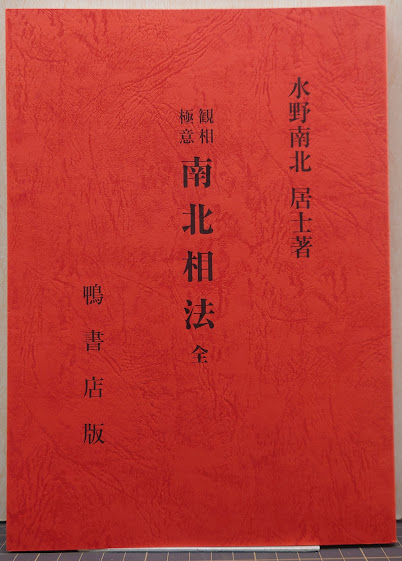 水野南北 居士著
観相
極意
南北相法 全
鴨書店版